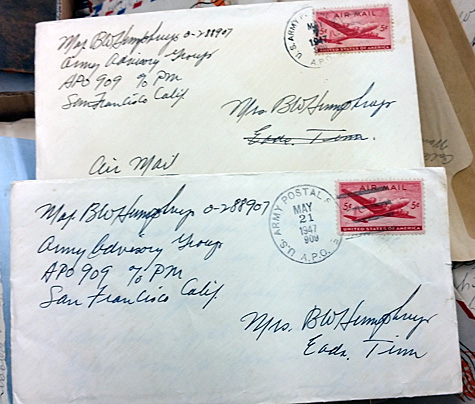 Maj BW Humphreys 0-288907
Army Advisory Group
APO 909 % PM
San Francisco Calif.
Air Mail
U.S. ARMY
A.P.O.
1947
AIR MAIL
5¢ 5¢
UNITED STATES OF AMERICA
Mrs BW Humphreys
Eads, Tenn.
Maj. BW Humphreys 0-288907
Army Advisory Group
APO 909 % PM
San Francisco Calif.
U.S. ARMY POSTAL
A.P.O.
MAY
21
1947
909
AIR MAIL
5¢ 5¢
UNITED STATES OF AMERICA
Mrs. BW Humphreys
Eads, Tenn